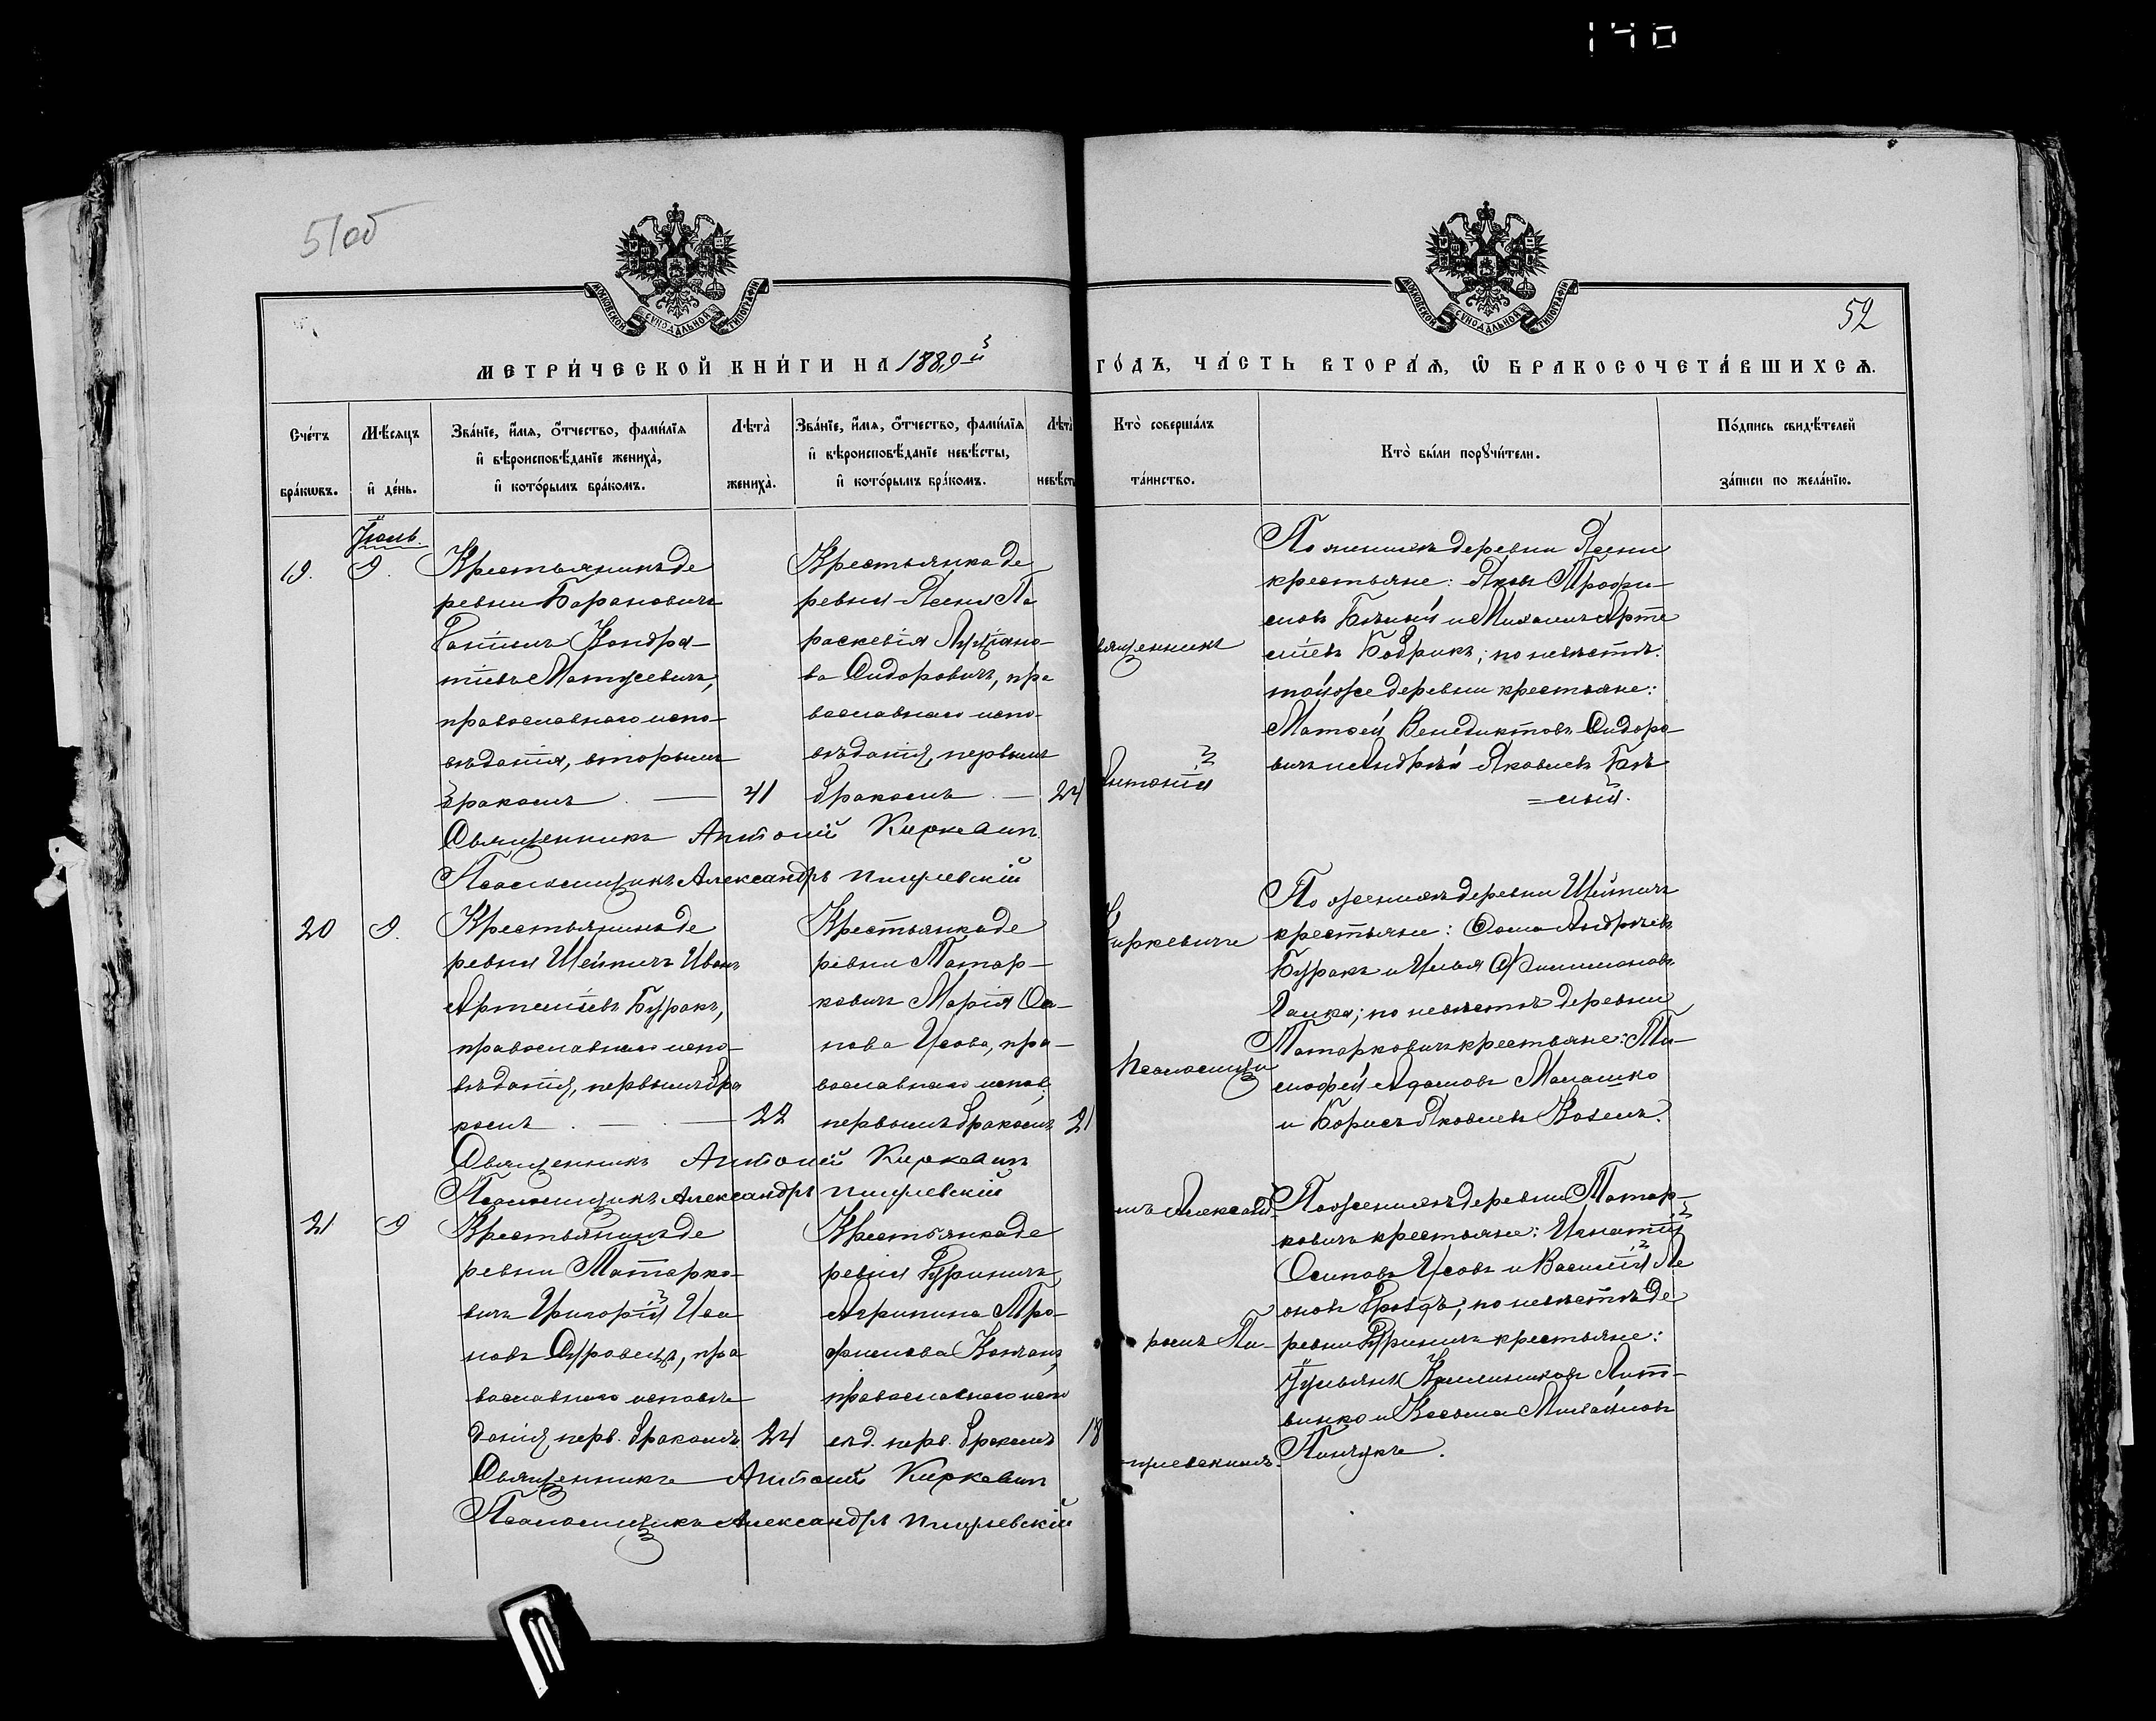 140
51об
МОСКОВСКОЙ СѴНОДАЛЬНОЙ ТИПОГРАФІИ
МОСКОВСКОЙ СѴНОДАЛЬНОЙ ТИПОГРАФІИ
52
МЕТРИ́ЧЕСКОЙ КНИ́ГИ НА 1889й
ГО́ДЪ, ЧА́СТЬ ВТОРА́Ѧ, Ѽ БРАКОСОЧЕТА́ВШИХСѦ.
Сче́тъ бра́кѡвъ.
Мѣ́сяцъ и҆ де́нь.
Зва́нїе, и҆́мѧ, ѻ҆́тчество, фами́лїѧ
и҆ вѣроисповѣ́данїе жениха̀,
и҆ кото́рымъ бра́комъ.
Лѣта̀ жениха̀.
Зва́нїе, и҆́мѧ, ѻ҆́тчество, фами́лїѧ
и҆ вѣроисповѣ́данїе невѣ́сты,
и҆ кото́рымъ бра́комъ.
Лѣта̀ невѣ́ст
Кто̀ соверша́лъ та́инство.
Кто̀ бы́ли порꙋчи́тели.
По́дпись свидѣ́телей за́писи по жела́нїю.
Іюль.
19. 9.
Крестьянинъ де
ревни Баранович
Кондра-
тіевъ Матусевичъ,
православнаго испо-
вѣданія, вторымъ
бракомъ. — 41
Крестьянка де
ревни Ясени Па
раскевія
ва Сидоровичъ, пра
вославнаго испо-
вѣданія, первымъ
бракомъ. — 24
вященникъ
Антоній
По женихѣ деревни Ясени
крестьяне: Яковъ Трофи-
мовъ Бѣлый и Михаилъ Арте
міевъ Бобрикъ; по невѣстѣ:
той же деревни крестьяне:
Матѳей Венедиктовъ Сидоро
вичъ и Андрей Яковлевъ Бѣ
=лый.
Священникъ Антоній Киркевичъ
Псаломщикъ Александръ
20 9.
Крестьянинъ де
ревни Шейпичъ Иванъ
Артеміевъ Буракъ,
православнаго испо-
вѣданія, первымъ бра
комъ. — 22
Крестьянка де
ревни Матар-
ковичъ Марія Оси-
пова Усова, пра-
вославнаго испов.
первымъ бракомъ 21
Киркевичъ
Псаломщи
По женихѣ деревни Шейпичъ
крестьяне: Ѳома Андреевъ
Буракъ и Илья Филимоновъ
по невѣстѣ деревни
Матарковичъ крестьяне: Ти-
моѳей Адамовъ Малашко
и Борисъ Яковлевъ Козелъ.
Священникъ Антоній Киркевичъ
Псаломщикъ Александръ
21 9
Крестьянинъ де
ревни Матарко-
вичъ Григорій Ива
новъ пра
вославнаго исповѣ
данія, перв. бракомъ 24
Крестьянка де
ревни
Агрипина Тро-
фимова
православнаго испо
вѣд. перв. бракомъ 18
мъ Александ-
ромъ Пи-
По женихѣ деревни Матар-
ковичъ крестьяне: Игнатій
Осиповъ Усовъ и Василій Ле
оновъ по невѣстѣ де
ревни крестьяне:
Іульянъ Каллиниковъ Лит-
винко и Косьма Михайловъ
Пинчукъ.
Священникъ Антоній Киркевичъ
Псаломщикъ Александръ